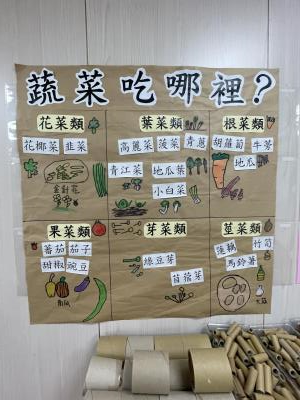 蔬菜吃哪裡？
花菜類
花椰菜 韭菜
金針花
葉菜類
高麗菜 菠菜 青蔥
青江菜 地瓜葉
小白菜
根菜類
胡蘿蔔 牛蒡
地瓜
果菜類
蕃茄 茄子
甜椒 豌豆
南瓜
芽菜類
綠豆芽
苜蓿芽
莖菜類
蓮藕 竹筍
馬鈴薯